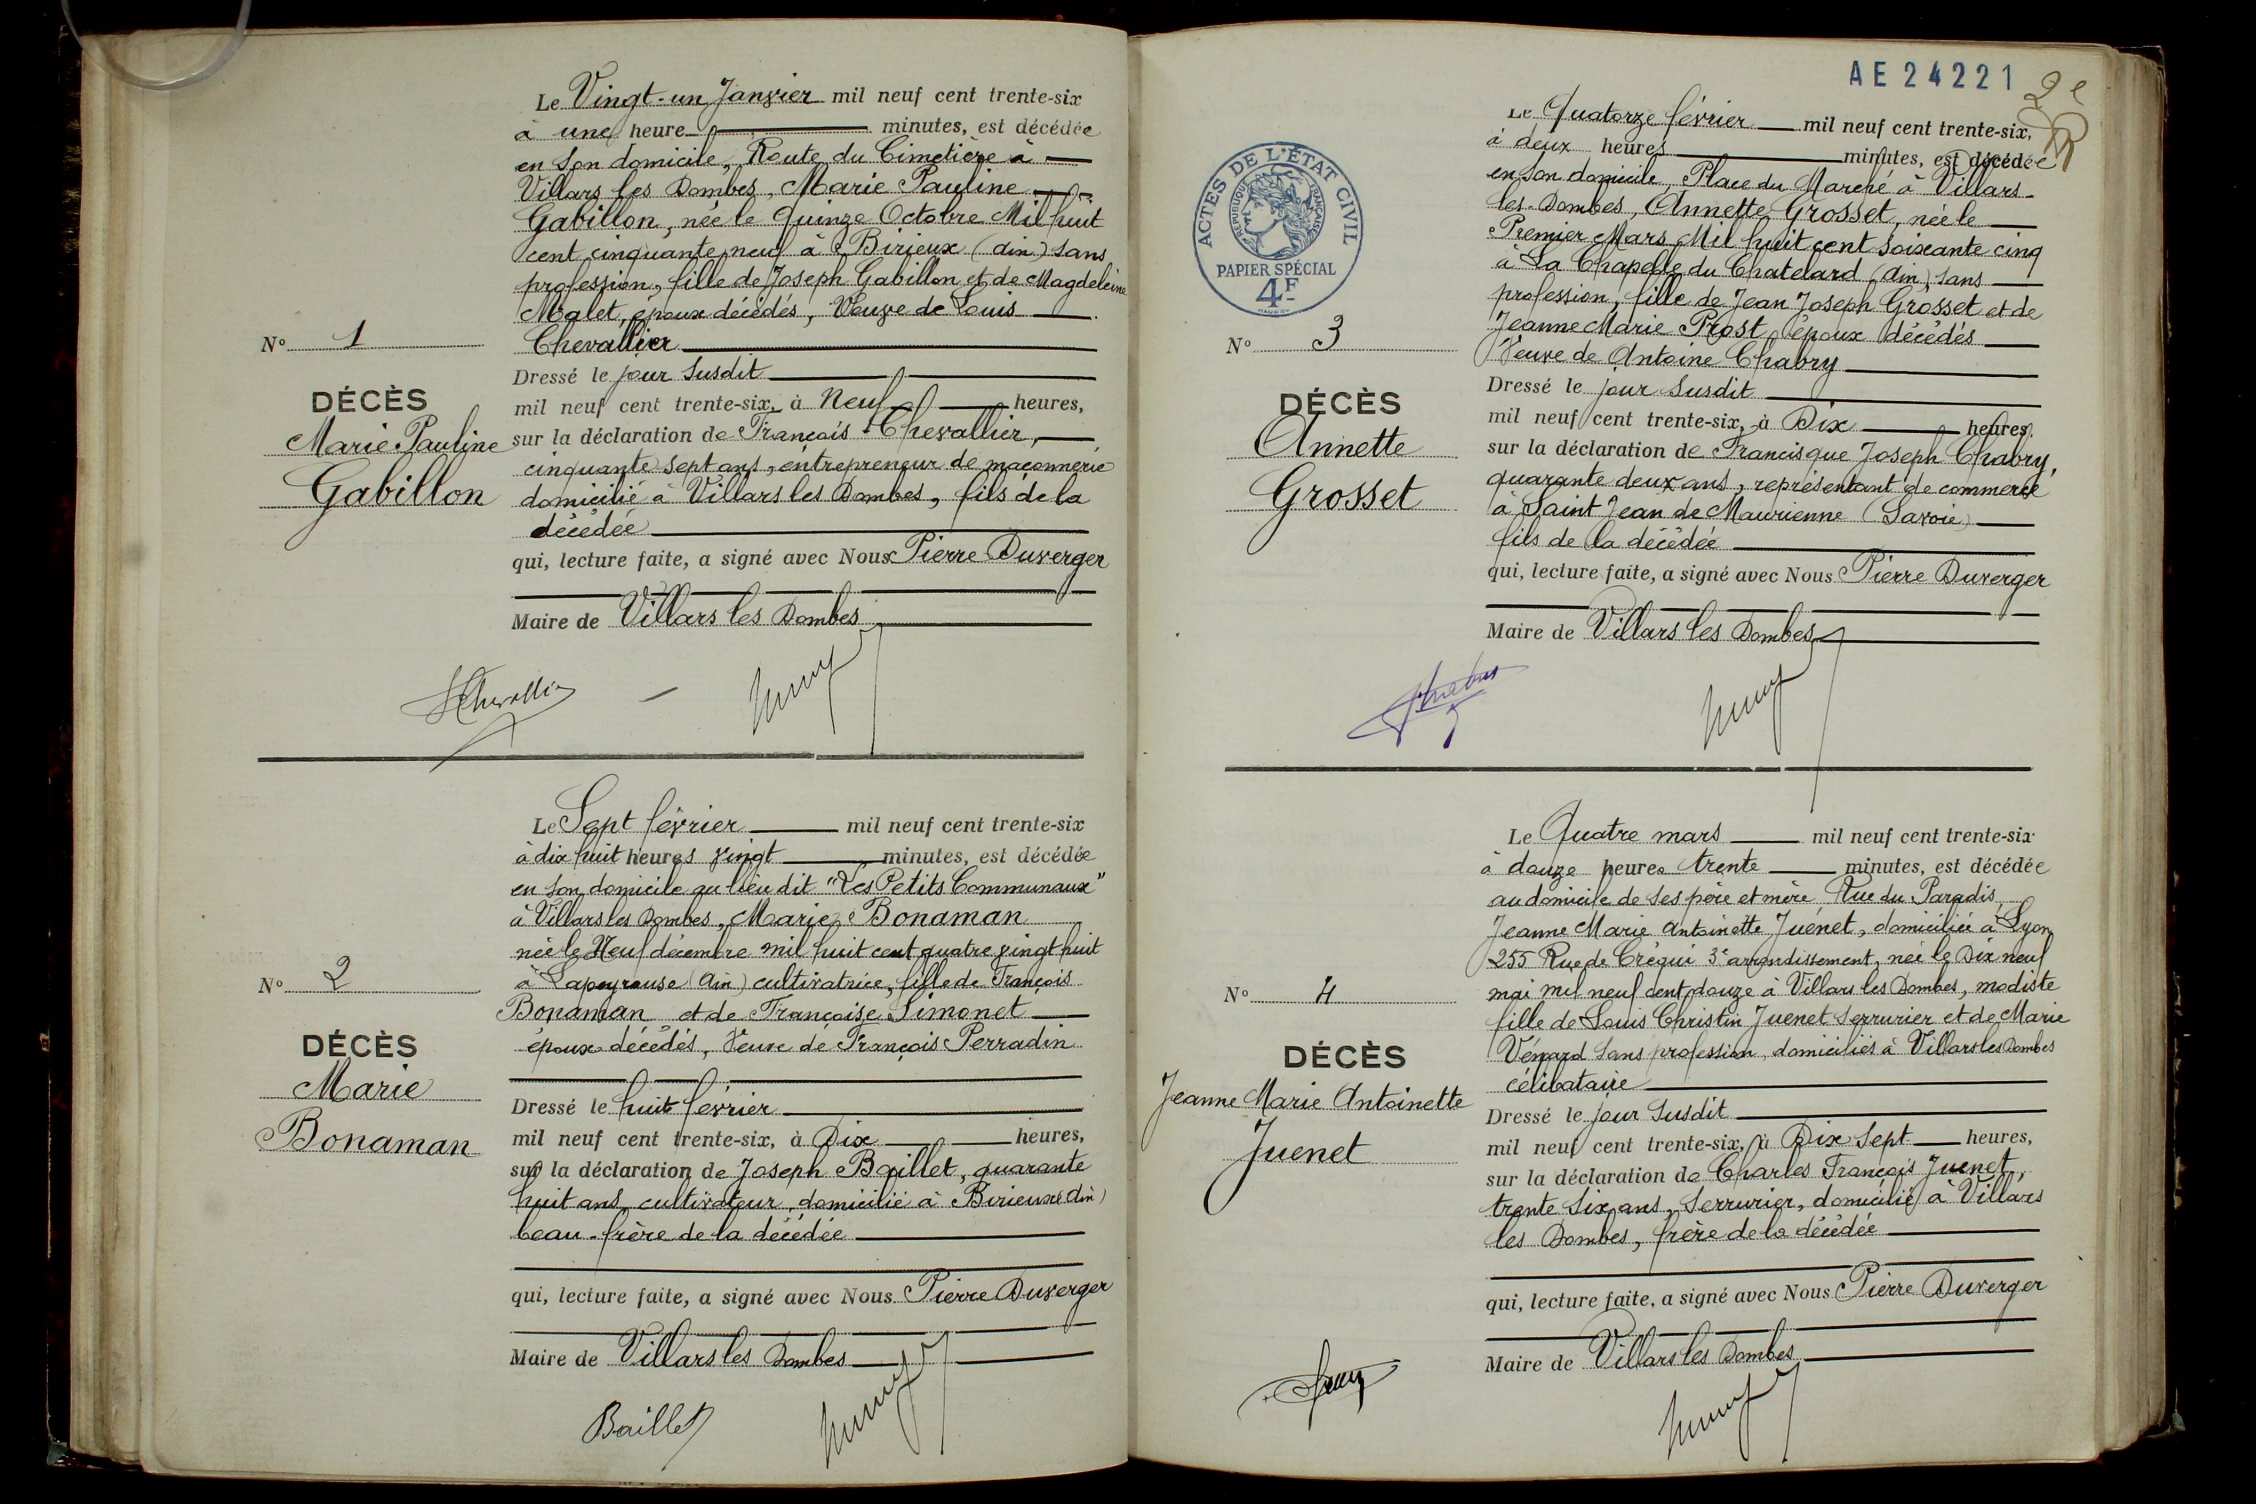 Le Vingt-un Janvier mil neuf cent trente-six
à une heure minutes, est décédée
en son domicile, Route du Cimetière à
Villars les Dombes, Marie Pauline
Gabillon, née le quinze Octobre Mil huit
cent cinquante neuf à Birieux (ain) sans
profession, fille de Joseph Gabillon et de Magdeleine
Malet, époux décédés, Veuve de Louis
Chevallier
Nº 1
DÉCÈS
Marie Pauline
Gabillon
Dressé le jour susdit
mil neuf cent trente-six, à Neuf heures,
sur la déclaration de François Chevallier,
cinquante sept ans, entrepreneur de maçonnerie
domicilié à Villars les Dombes, fils de la
décédée
qui, lecture faite, a signé avec Nous Pierre Duverger
Maire de Villars les Dombes
Le Sept février mil neuf cent trente-six
à dix huit heures vingt minutes, est décédée
en son domicile au lieu dit "Les Petits Communaux"
à Villars les Dombes, Marie Bonaman
née le Neuf décembre mil huit cent quatre vingt huit
à Lapeyrouse (Ain) cultivatrice, fille de François
Bonaman et de Françoise Simonet
époux décédés, Veuve de François Perradin
Nº 2
DÉCÈS
Marie
Bonaman
Dressé le huit février
mil neuf cent trente-six, à Dix heures,
sur la déclaration de Joseph Baillet, quarante
huit ans, cultivateur, domicilié à Birieux (Ain)
beau-frère de la décédée
qui, lecture faite, a signé avec Nous Pierre Duverger
Maire de Villars les Dombes
Baillet
AE 24221
2e
ACTES DE L'ÉTAT CIVIL
RÉPUBLIQUE FRANÇAISE
PAPIER SPÉCIAL
4F
Le Quatorze février mil neuf cent trente-six,
à deux heures minutes, est décédée
en son domicile, Place du Marché à Villars-
les-Dombes, Annette Grosset, née le
Premier Mars Mil huit cent soixante cinq
à La Chapelle du Chatelard (Ain), sans
profession, fille de Jean Joseph Grosset et de
Jeanne Marie Prost époux décédés
Veuve de Antoine Chabry
Nº 3
DÉCÈS
Annette
Grosset
Dressé le jour susdit
mil neuf cent trente-six, à Dix heures,
sur la déclaration de Francisque Joseph Chabry,
quarante deux ans, représentant de commerce
à Saint Jean de Maurienne (Savoie)
fils de la décédée
qui, lecture faite, a signé avec Nous Pierre Duverger
Maire de Villars les Dombes
Le Quatre mars mil neuf cent trente-six
à douze heures trente minutes, est décédée
au domicile de ses père et mère, Rue du Paradis,
Jeanne Marie Antoinette Juenet, domiciliée à Lyon
255 Rue de Créqui 3e arrondissement, née le Dix neuf
mai mil neuf cent douze à Villars les Dombes, modiste
fille de Louis Christin Juenet serrurier et de Marie
Vénard sans profession, domiciliés à Villars les Dombes
célibataire
Nº 4
DÉCÈS
Jeanne Marie Antoinette
Juenet
Dressé le jour susdit
mil neuf cent trente-six, à Dix sept heures,
sur la déclaration de Charles François Juenet,
trente six ans, serrurier, domicilié à Villars
les Dombes, frère de la décédée
qui, lecture faite, a signé avec Nous Pierre Duverger
Maire de Villars les Dombes